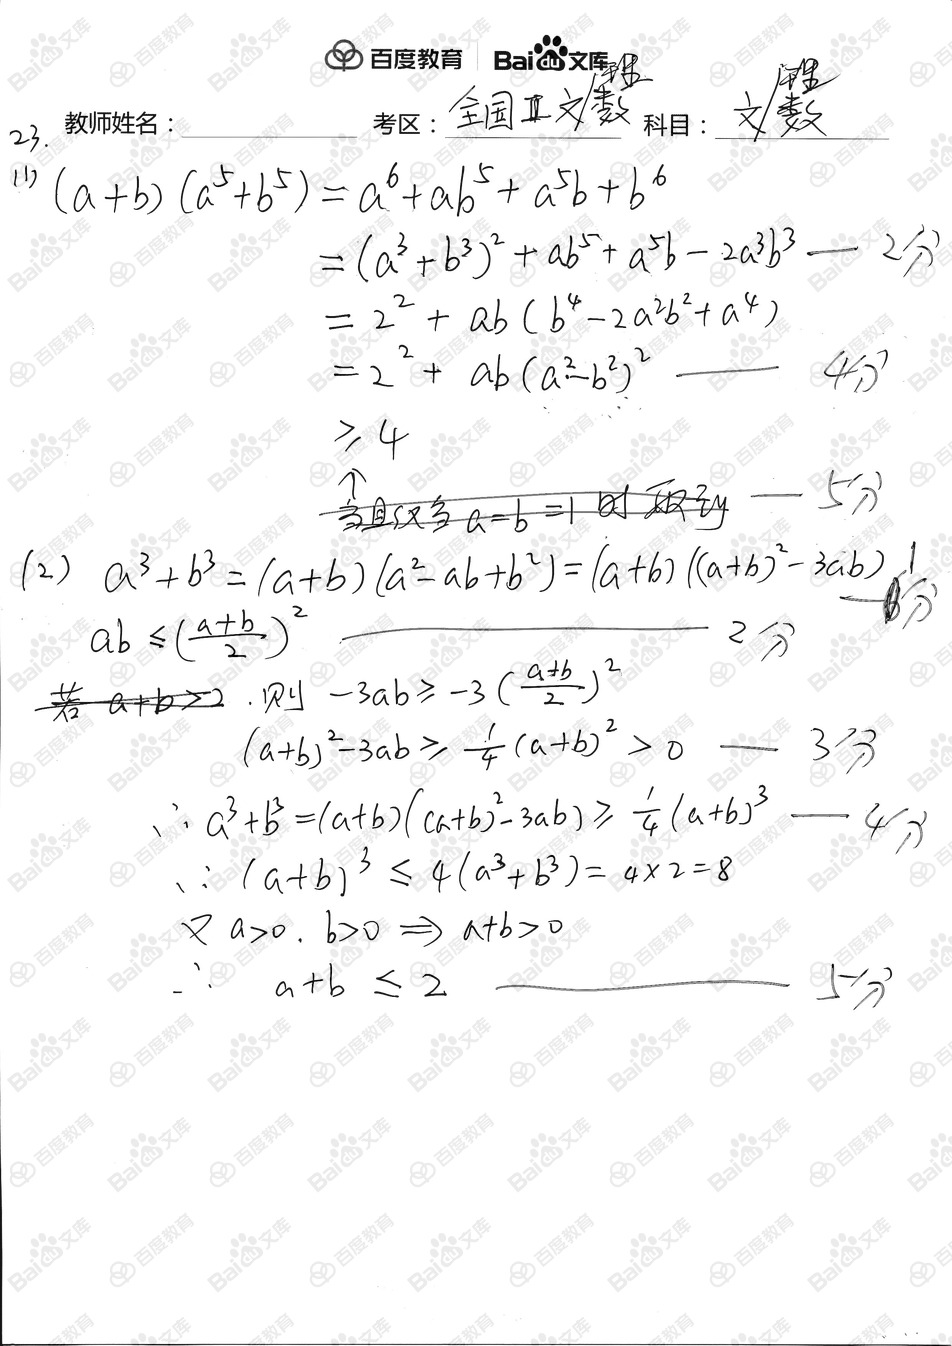 百度教育 Bai du 文库
教师姓名： 考区：全国Ⅱ文/理数 科目：文/理数
23.
(1) (a+b)(a⁵+b⁵)=a⁶+ab⁵+a⁵b+b⁶
=(a³+b³)²+ab⁵+a⁵b-2a³b³ — 2分
=2²+ab(b⁴-2a²b²+a⁴)
=2²+ab(a²-b²)² — 4分
≥4
↑
当且仅当a=b=1时取到 — 5分
(2) a³+b³=(a+b)(a²-ab+b²)=(a+b)((a+b)²-3ab) — 1分
ab≤((a+b)/2)² — 2分
若 a+b>2 .则 -3ab≥-3((a+b)/2)²
(a+b)²-3ab≥1/4(a+b)²>0 — 3分
∴a³+b³=(a+b)((a+b)²-3ab)≥1/4(a+b)³ — 4分
∴(a+b)³≤4(a³+b³)=4×2=8
又 a>0. b>0 ⇒ a+b>0
∴ a+b≤2 — 5分